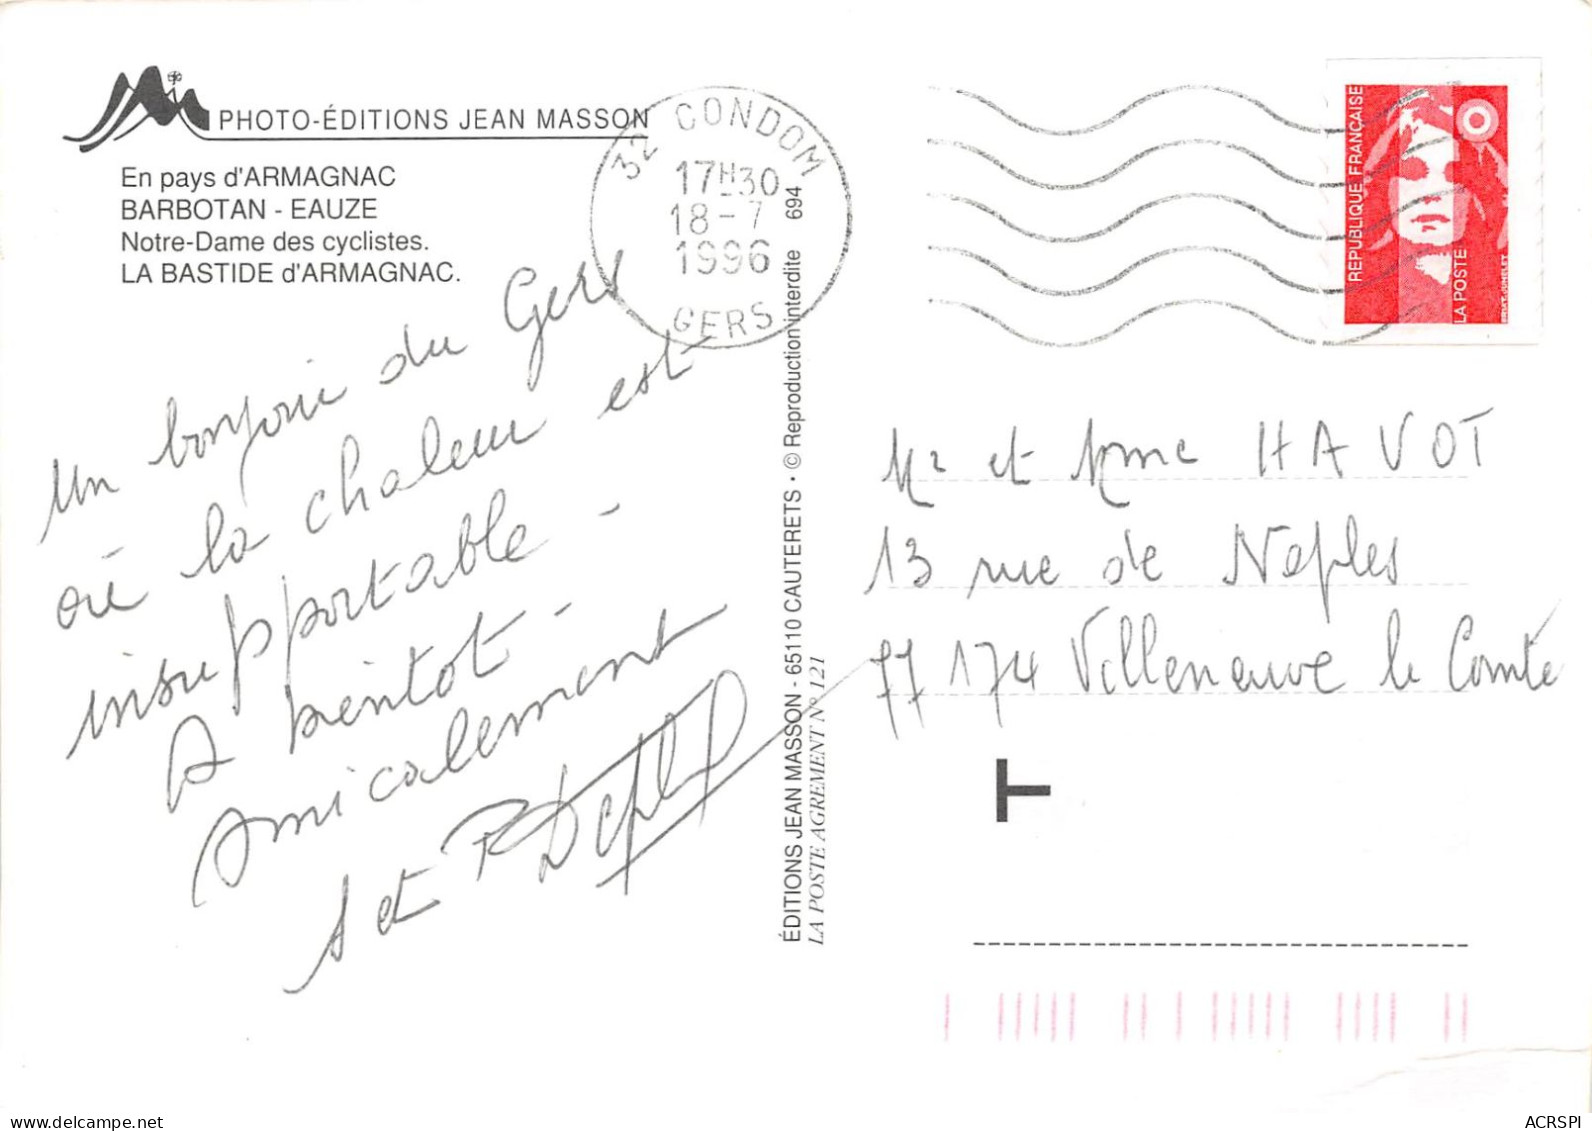 PHOTO-ÉDITIONS JEAN MASSON
En pays d'ARMAGNAC
BARBOTAN - EAUZE
Notre-Dame des cyclistes.
LA BASTIDE d'ARMAGNAC.
32 CONDOM
17H30
18-7
1996
GERS
REPUBLIQUE FRANÇAISE
LA POSTE
Un bonjour du Gers
où la chaleur est
insupportable -
A bientôt -
Amicalement
et
ÉDITIONS JEAN MASSON - 65110 CAUTERETS • © Reproduction interdite 694
LA POSTE AGREMENT N° 121
Mr et Mme HAVOT
13 rue de Neples
77174 Villeneuve le Comte
T
ACRSPI